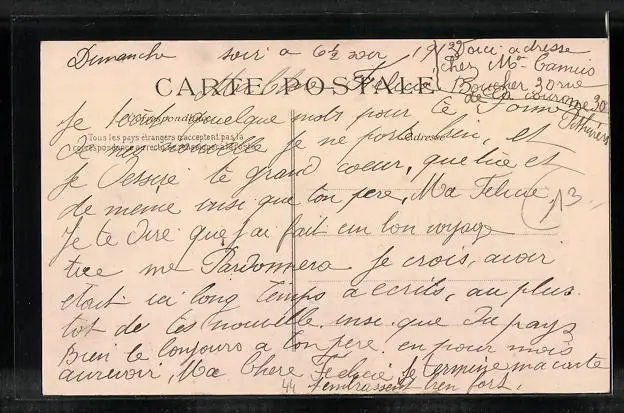 Dimanche soir a 6 h ½ soir 19
Voici adresse
Chez Mr Camus
Boucher 30 rue
de la couronne 30
Pithiviers
CARTE POSTALE
Ma Chere Felicie
Correspondance
Tous les pays étrangers n'acceptent pas la
correspondance au recto
Adresse
Je quelque mots pour te donne
de mes nouvelle je ne porte bien, et
Je Desire te grand coeur, que tue et
de meme insi que ton pere, Ma Felicie
13
Je te dire que j'ai fait un bon voyage
tue me Pardonnera Je crois, avoir
etait ici long Temps a ecrits, au plus
tot de tes nouvelle insi que du pays
Bien le bonjours a ton pere en pour mois
aurevoir, Ma Chere Felicie Je termine ma carte
44 t'embrassent bien fort.